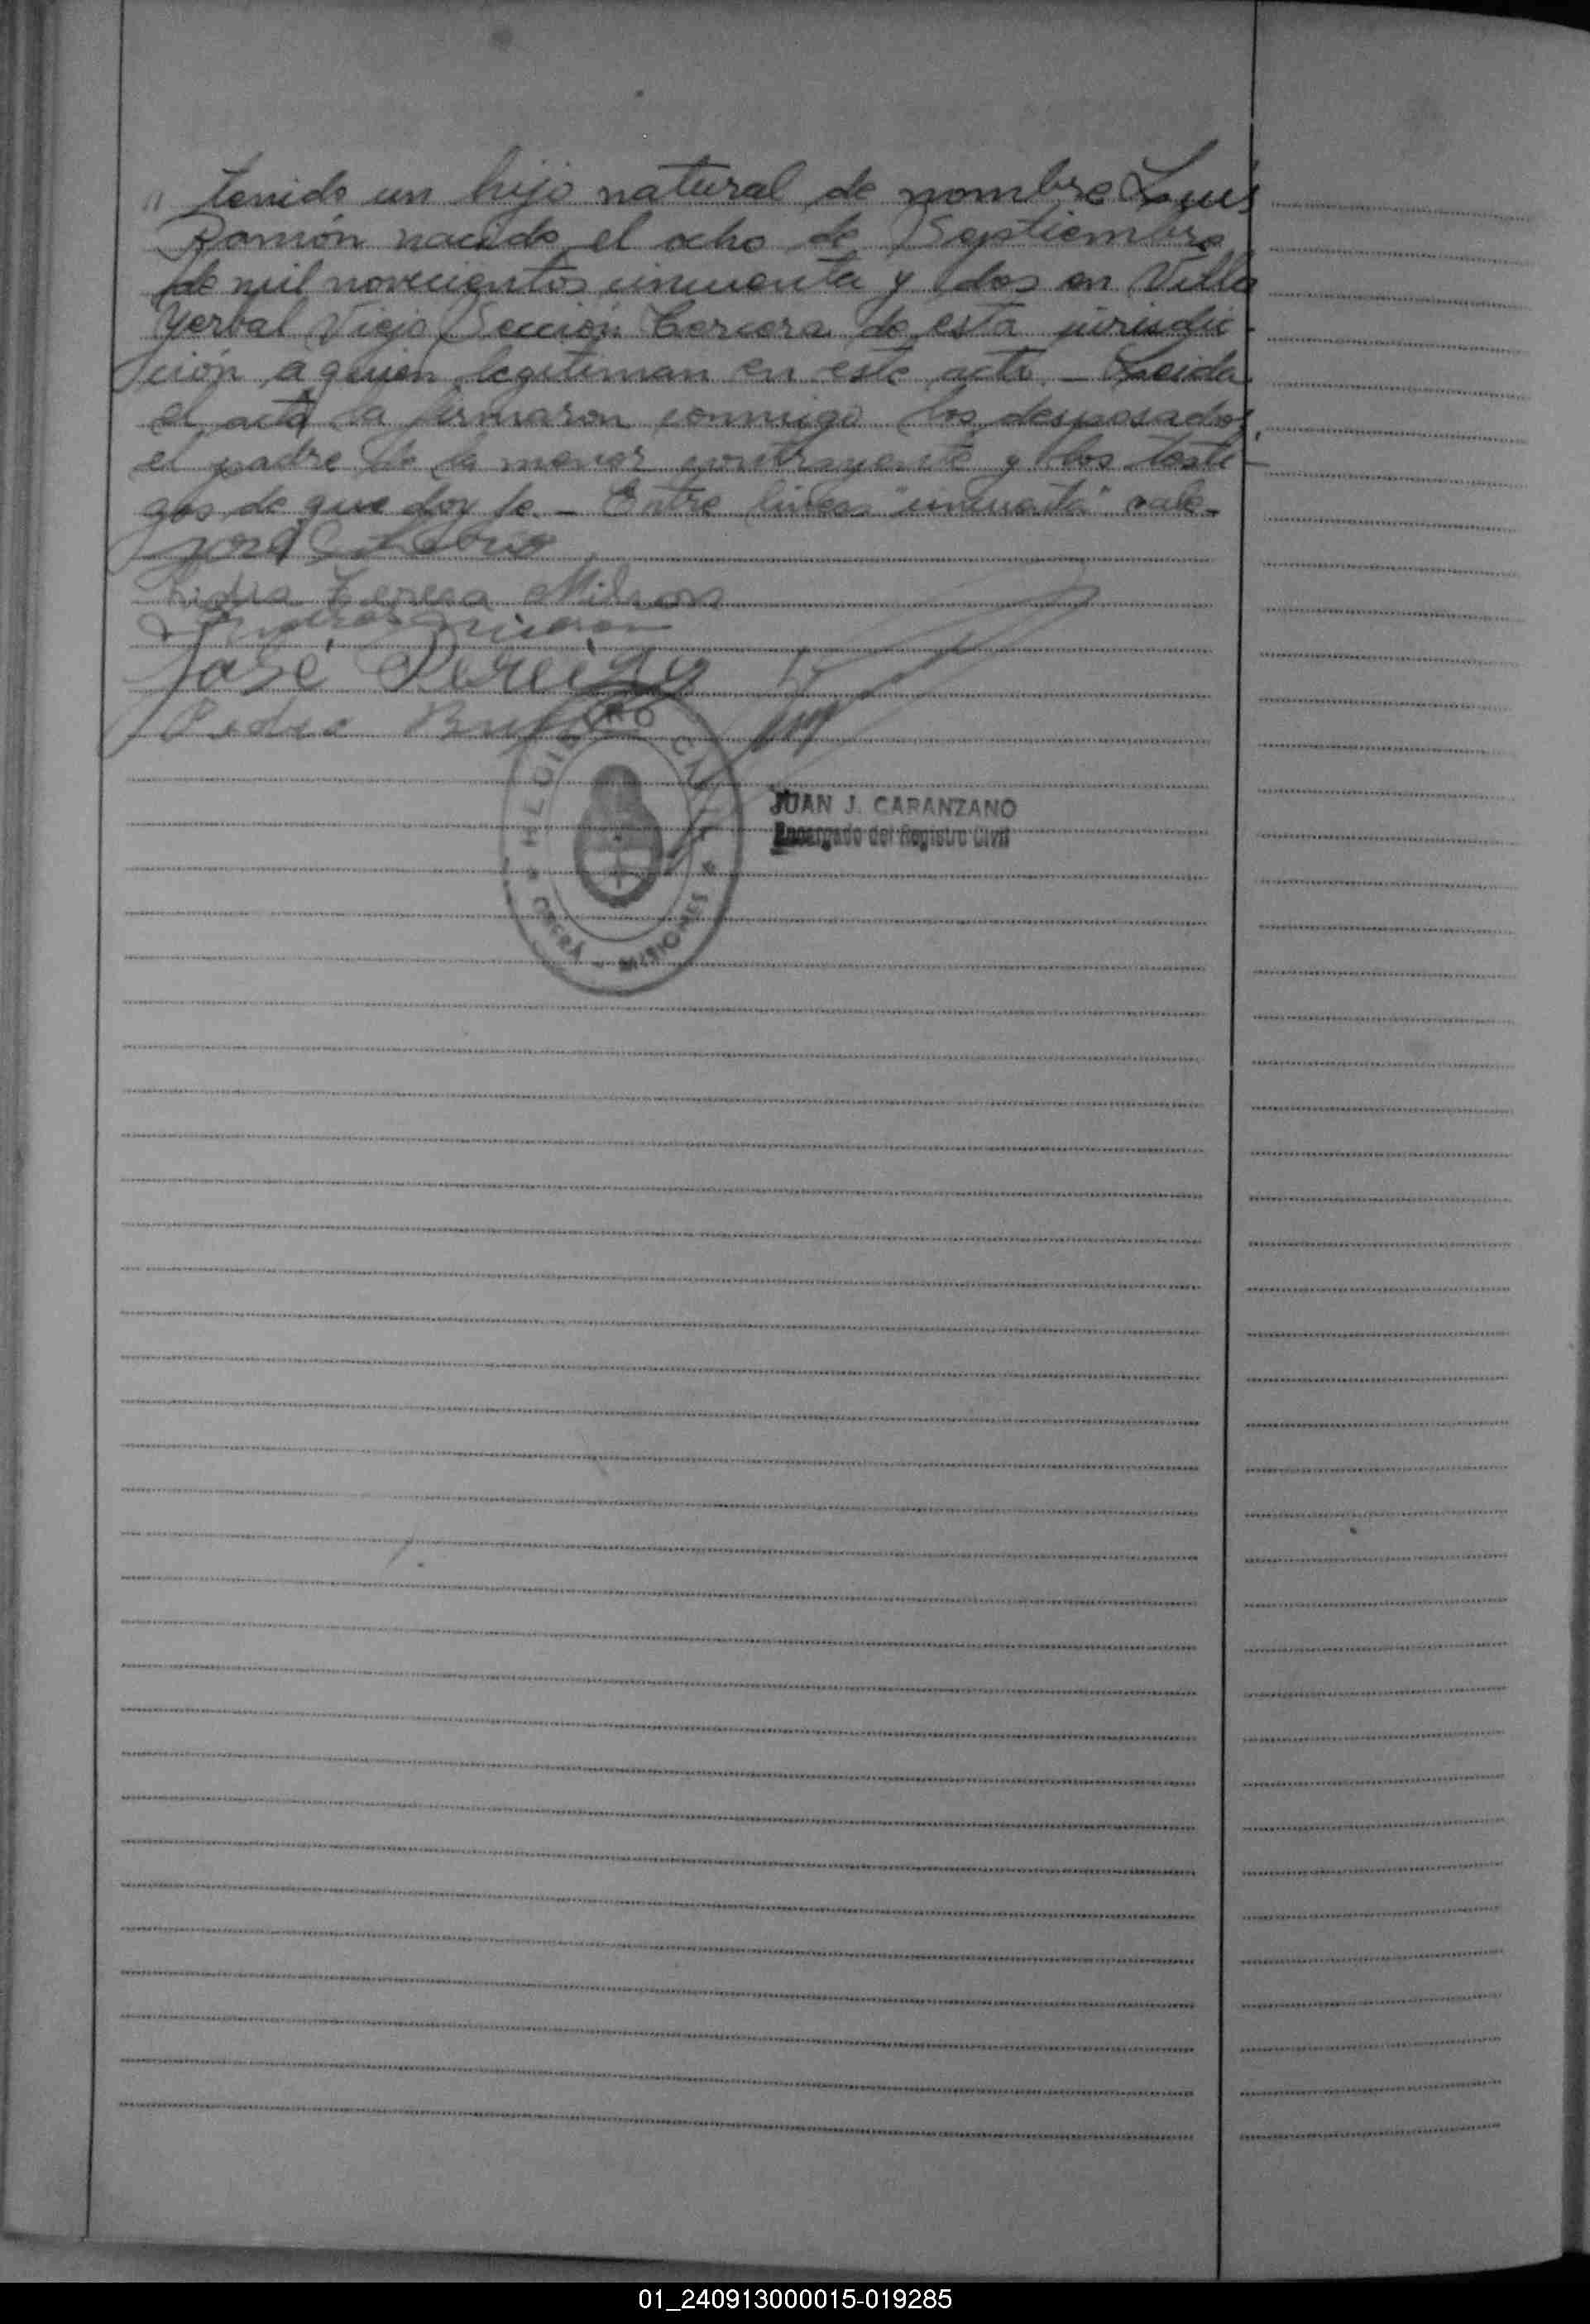 " tenido un hijo natural de nombre Luis
Ramón nacido el ocho de Septiembre
de mil novecientos cincuenta y dos en Villa
Yerbal Viejo Sección Tercera de esta jurisdic-
ción a quien legitiman en este acto. - Leida
el acta la firmaron conmigo los desposados,
el padre de la menor contrayente y los testi-
gos de que doy fe. - Entre lineas "cincuenta" vale-
José
Lidia Teresa
José Pereira
Pedro
REGISTRO CIVIL
OBERÁ - MISIONES
JUAN J. CARANZANO
Encargado del Registro Civil
01_240913000015-019285